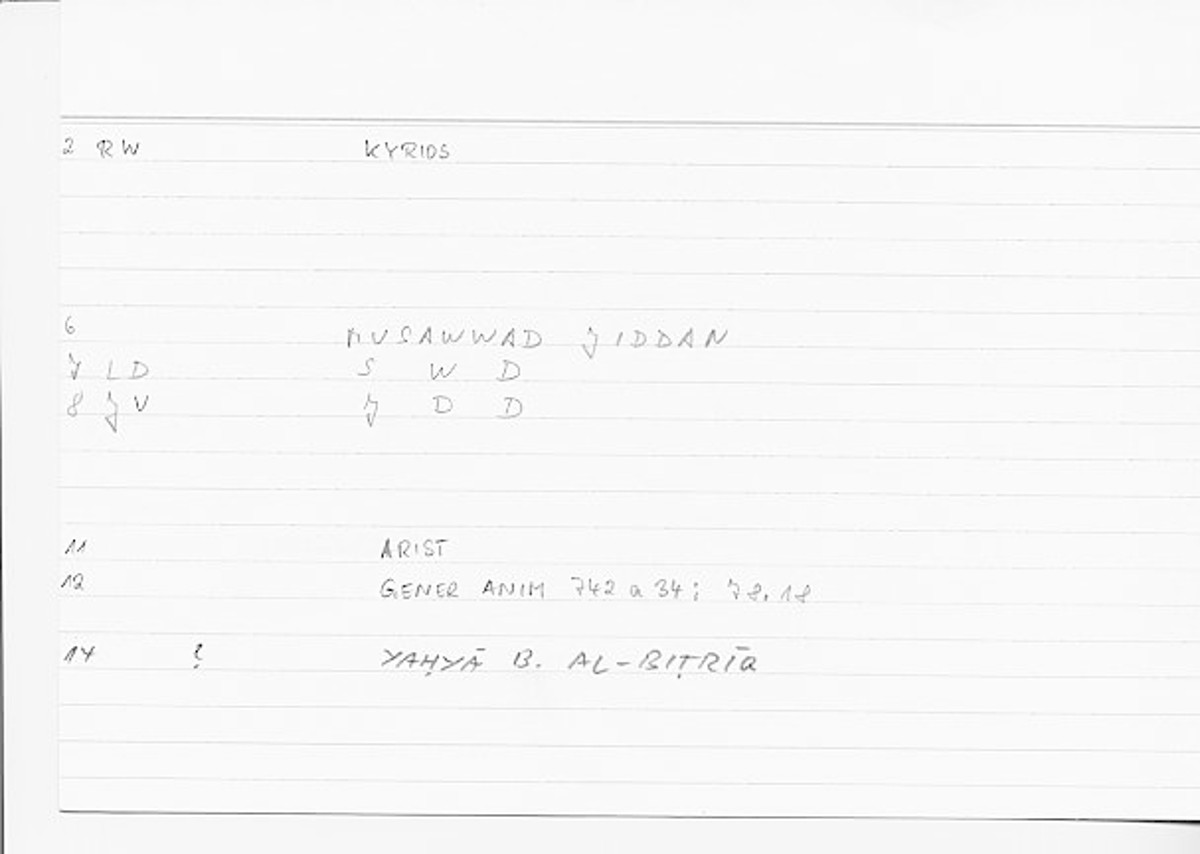 2 RW KYRIOS
6 MUSAWWAD JIDDAN
7 LD S W D
8 JV J D D
11 ARIST
12 GENER ANIM 742 a 34; 78.18
14 ? YAḤYĀ B. AL-BIṬRĪQ